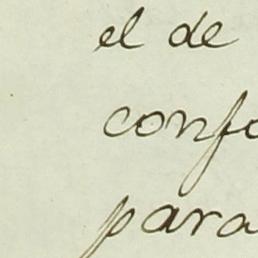 el de
confo
para